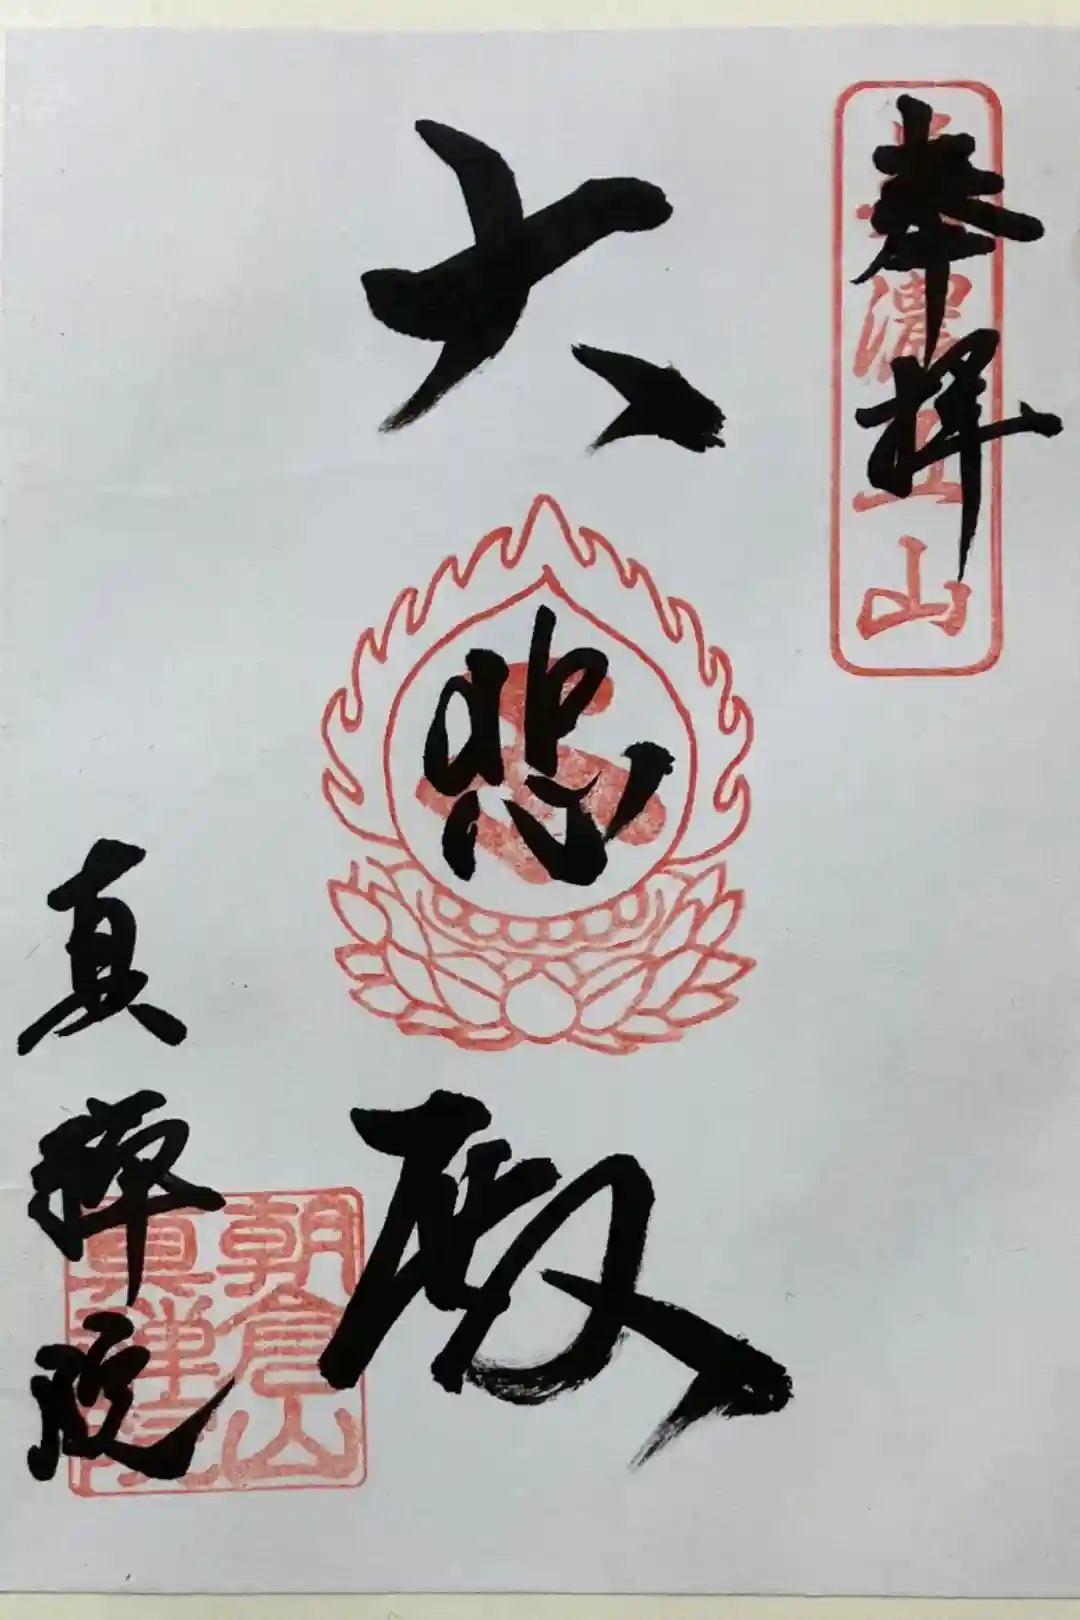 奉拝
濃
山
大悲殿
真禅院
朝倉山
真禪院